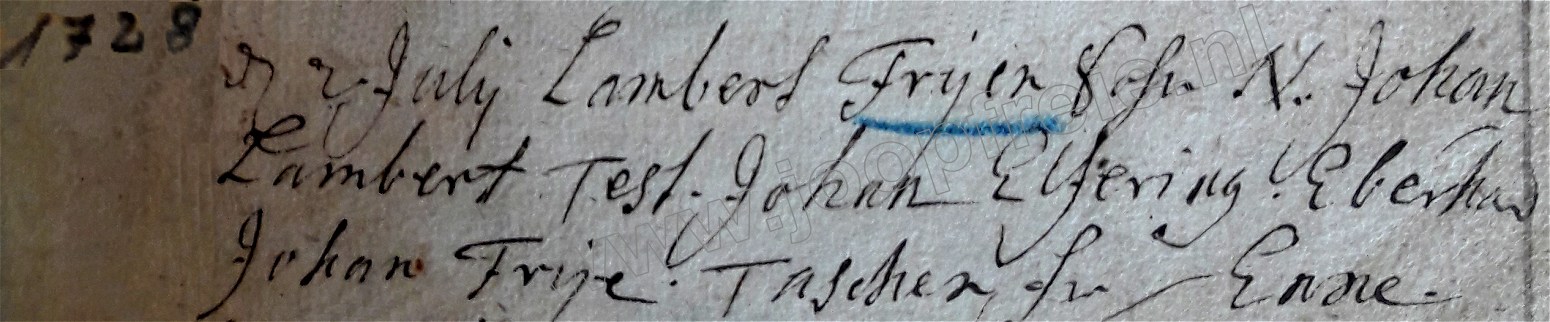 1728
d 2 Julij Lambert Frijen Sohn N. Johan
Lambert Test. Johan Elfering. Eberhard
Johan Frije. Taschen fr Enne.
www.joopfrelo.nl